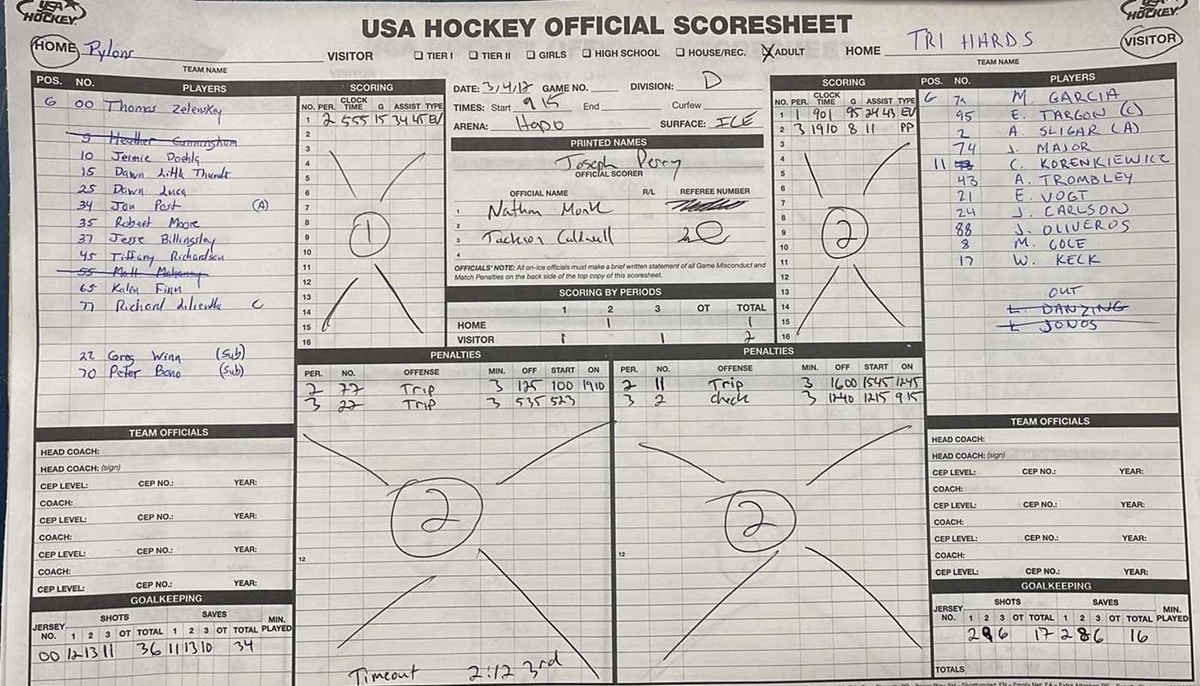 USA HOCKEY
USA HOCKEY
USA HOCKEY OFFICIAL SCORESHEET
HOME Pylons
TEAM NAME
VISITOR ☐ TIER I ☐ TIER II ☐ GIRLS ☐ HIGH SCHOOL ☐ HOUSE/REC. ☒ ADULT HOME
TRI HARDS VISITOR
TEAM NAME
POS. NO. PLAYERS
G 00 Thomas Zelewkey
5 Heather Cunningham
10 Jermie Doehla
15 Dawn Little Thundr
25 Dawn Luca
34 Jon Post (A)
35 Robert Moore
37 Jesse Billingsley
45 Tiffany Richardson
55 Matt Mahaney
65 Kalen Finn
77 Richard C
22 Greg Winn (Sub)
70 Peter Bono (Sub)
SCORING
NO. PER. CLOCK TIME G ASSIST TYPE
1 2 555 15 34 45 EV
2
3
4
5
6
7
8
9
10
11
12
13
14
15
16
1
DATE: 3/4/17 GAME NO. DIVISION: D
TIMES: Start 915 End Curfew
ARENA: Hapo SURFACE: ICE
PRINTED NAMES
Joseph Perry
OFFICIAL SCORER
OFFICIAL NAME R/L REFEREE NUMBER
1 Nathan Monk
2
3 Jackson Caldwell
4
OFFICIALS' NOTE: All on-ice officials must make a brief written statement of all Game Misconduct and Match Penalties on the back side of the top copy of this scoresheet.
SCORING BY PERIODS
1 2 3 OT TOTAL
HOME 1 1
VISITOR 1 1 2
SCORING
NO. PER. CLOCK TIME G ASSIST TYPE
1 1 901 95 24 43 EV
2 3 1910 8 11 PP
3
4
5
6
7
8
9
10
11
12
13
14
15
16
2
POS. NO. PLAYERS
G M. GARCIA
95 E. TARGON (C)
2 A. SLIGAR (A)
74 J. MAJOR
11 C. KORENKIEWICZ
43 A. TROMBLEY
21 E. VOGT
24 J. CARLSON
88 J. OLIVEROS
8 M. COLE
17 W. KECK
OUT
L. DANZING
L. JONOS
PENALTIES
PER. NO. OFFENSE MIN. OFF START ON
2 77 Trip 3 125 100 1910
3 22 Trip 3 535 523
12
2
Timeout 2:12 3rd
PENALTIES
PER. NO. OFFENSE MIN. OFF START ON
2 11 Trip 3 1600 1545 1245
3 2 check 3 1240 1215 915
12
2
TEAM OFFICIALS
HEAD COACH:
HEAD COACH: (sign)
CEP LEVEL: CEP NO.: YEAR:
COACH:
CEP LEVEL: CEP NO.: YEAR:
COACH:
CEP LEVEL: CEP NO.: YEAR:
COACH:
CEP LEVEL: CEP NO.: YEAR:
GOALKEEPING
SHOTS SAVES
JERSEY NO. 1 2 3 OT TOTAL 1 2 3 OT TOTAL MIN. PLAYED
00 12 13 11 36 11 13 10 34
TEAM OFFICIALS
HEAD COACH:
HEAD COACH: (sign)
CEP LEVEL: CEP NO.: YEAR:
COACH:
CEP LEVEL: CEP NO.: YEAR:
COACH:
CEP LEVEL: CEP NO.: YEAR:
COACH:
CEP LEVEL: CEP NO.: YEAR:
GOALKEEPING
SHOTS SAVES
JERSEY NO. 1 2 3 OT TOTAL 1 2 3 OT TOTAL MIN. PLAYED
2 9 6 17 2 8 6 16
TOTALS